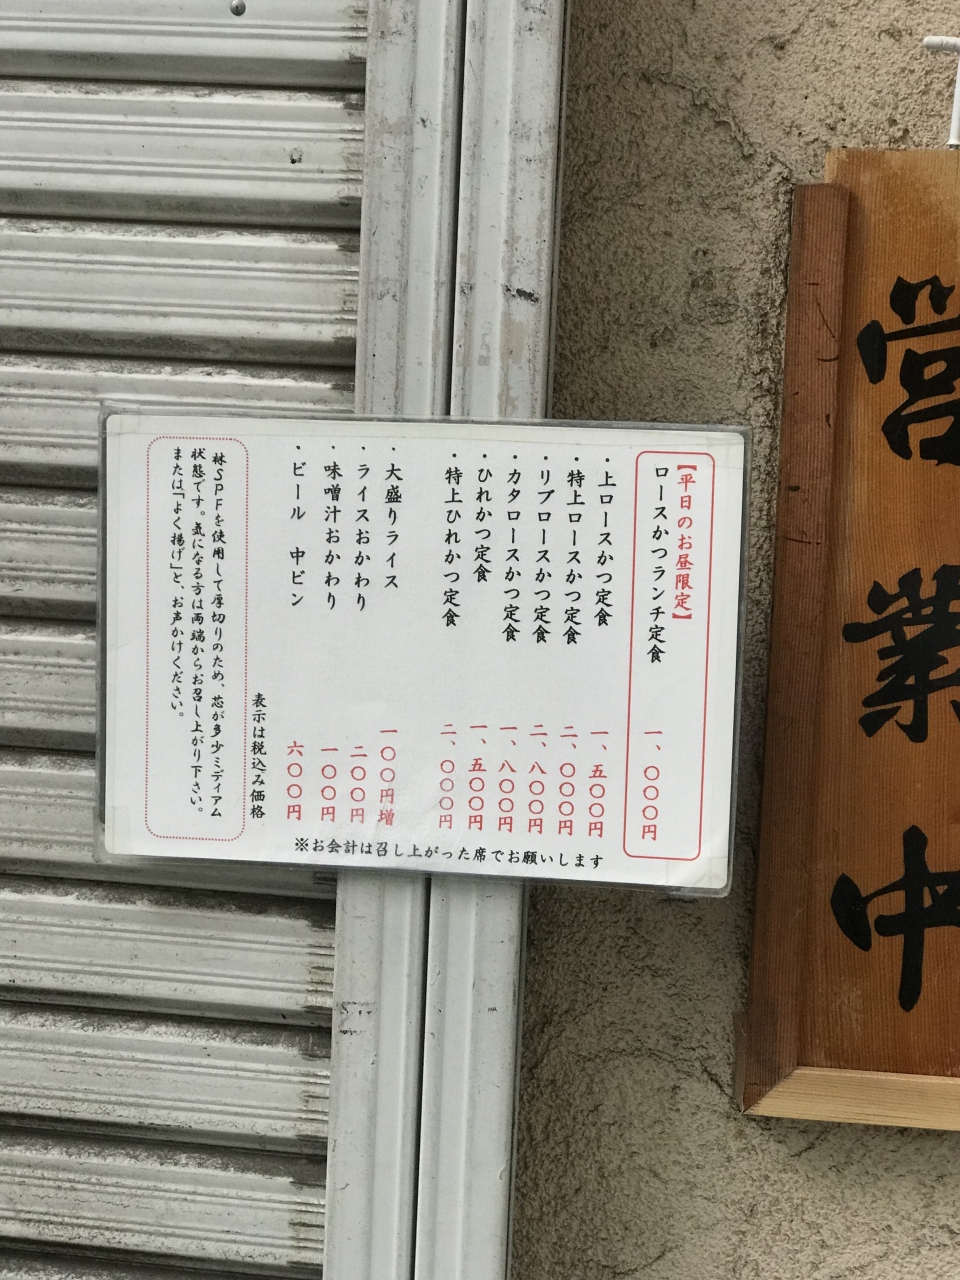 【平日のお昼限定】
ロースかつランチ定食 一、〇〇〇円
・上ロースかつ定食 一、五〇〇円
・特上ロースかつ定食 二、〇〇〇円
・リブロースかつ定食 二、八〇〇円
・カタロースかつ定食 一、八〇〇円
・ひれかつ定食 一、五〇〇円
・特上ひれかつ定食 二、〇〇〇円
・大盛りライス 一〇〇円増
・ライスおかわり 二〇〇円
・味噌汁おかわり 一〇〇円
・ビール 中ビン 六〇〇円
表示は税込み価格
※お会計は召し上がった席でお願いします
林SPFを使用して厚切りのため、芯が多少ミディアム
状態です。気になる方は両端からお召し上がり下さい。
または「よく揚げ」と、お声かけください。
営業中